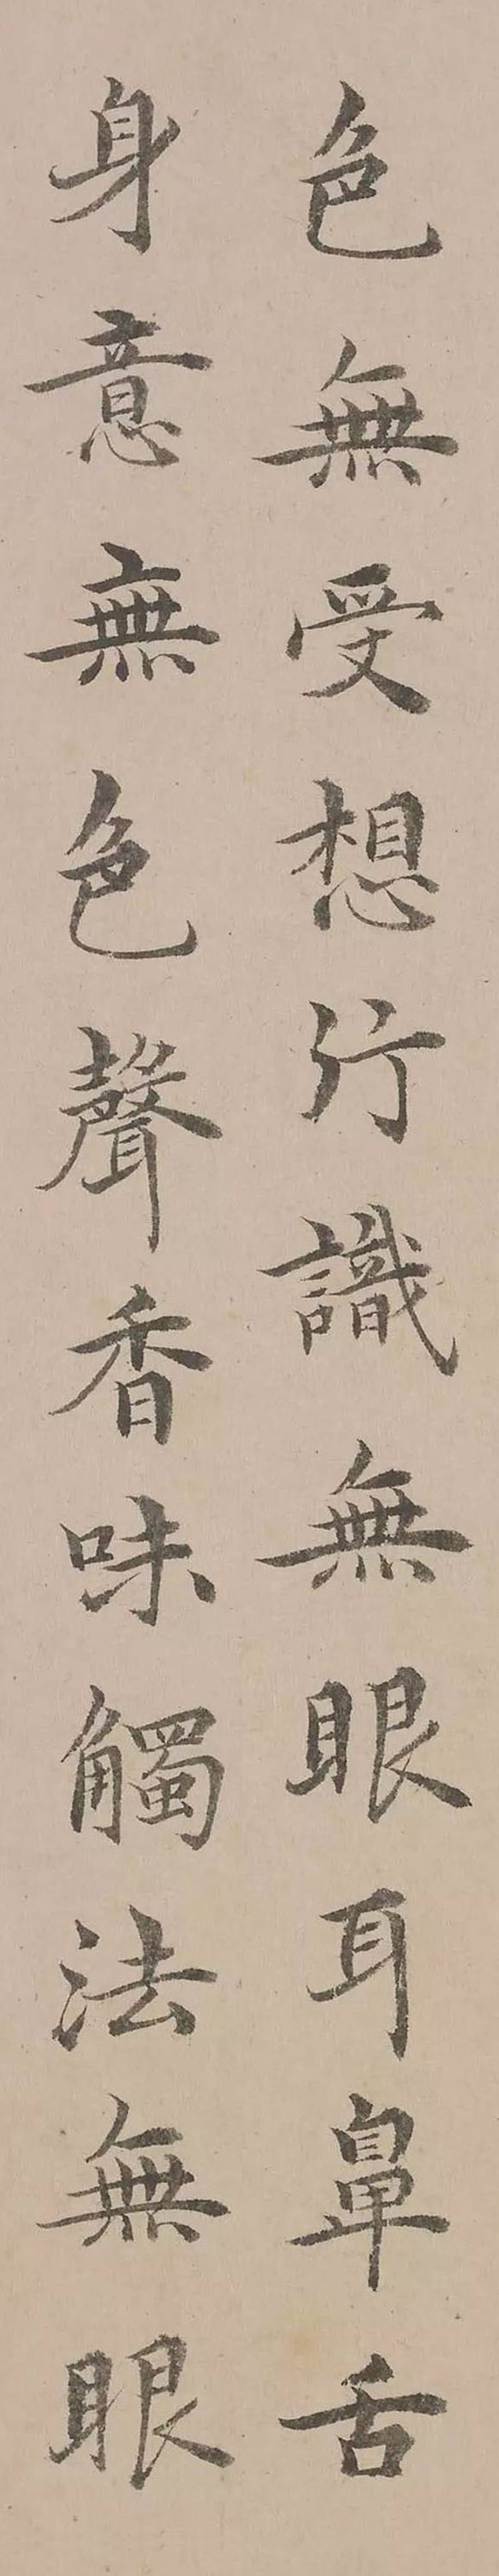 色無受想行識無眼耳鼻舌
身意無色聲香味觸法無眼